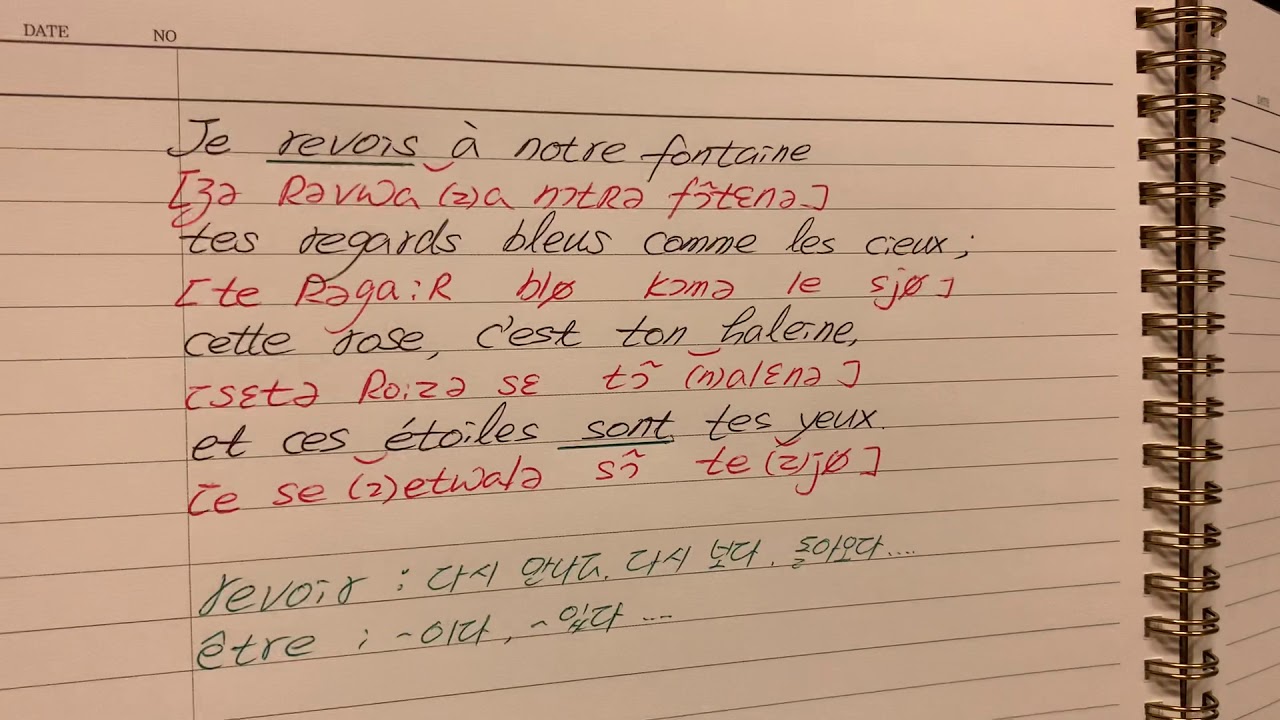 DATE NO
Je revois à notre fontaine
[ʒə Rəvwa (z)a nɔtRə fɔ̃tɛnə]
tes regards bleus comme les cieux;
[te Rəga:R blø kɔmə le sjø]
cette rose, c'est ton haleine,
[sɛtə Ro:zə sɛ tɔ̃ (n)alɛnə]
et ces étoiles sont tes yeux.
[e se (z)etwalə sɔ̃ te (z)jø]
revoir : 다시 만나다. 다시 보다. 돌아오다....
être ; ~이다, ~있다 ....